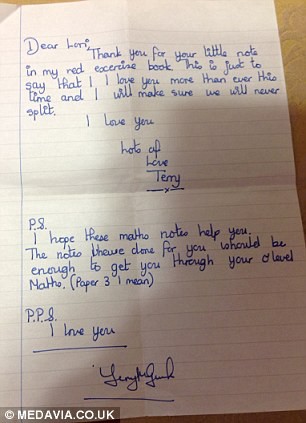 Dear Lori,
Thank you for your little note
in my red exercise book. This is just to
say that I, I love you more than ever this
time and I will make sure we will never
split.
I love you
Lots of
Love
Terry
x
P.S.
I hope these maths notes help you.
The notes I have done for you should be
enough to get you through your O'level
Maths. (Paper 3 I mean)
P.P.S.
I love you
© MEDAVIA.CO.UK